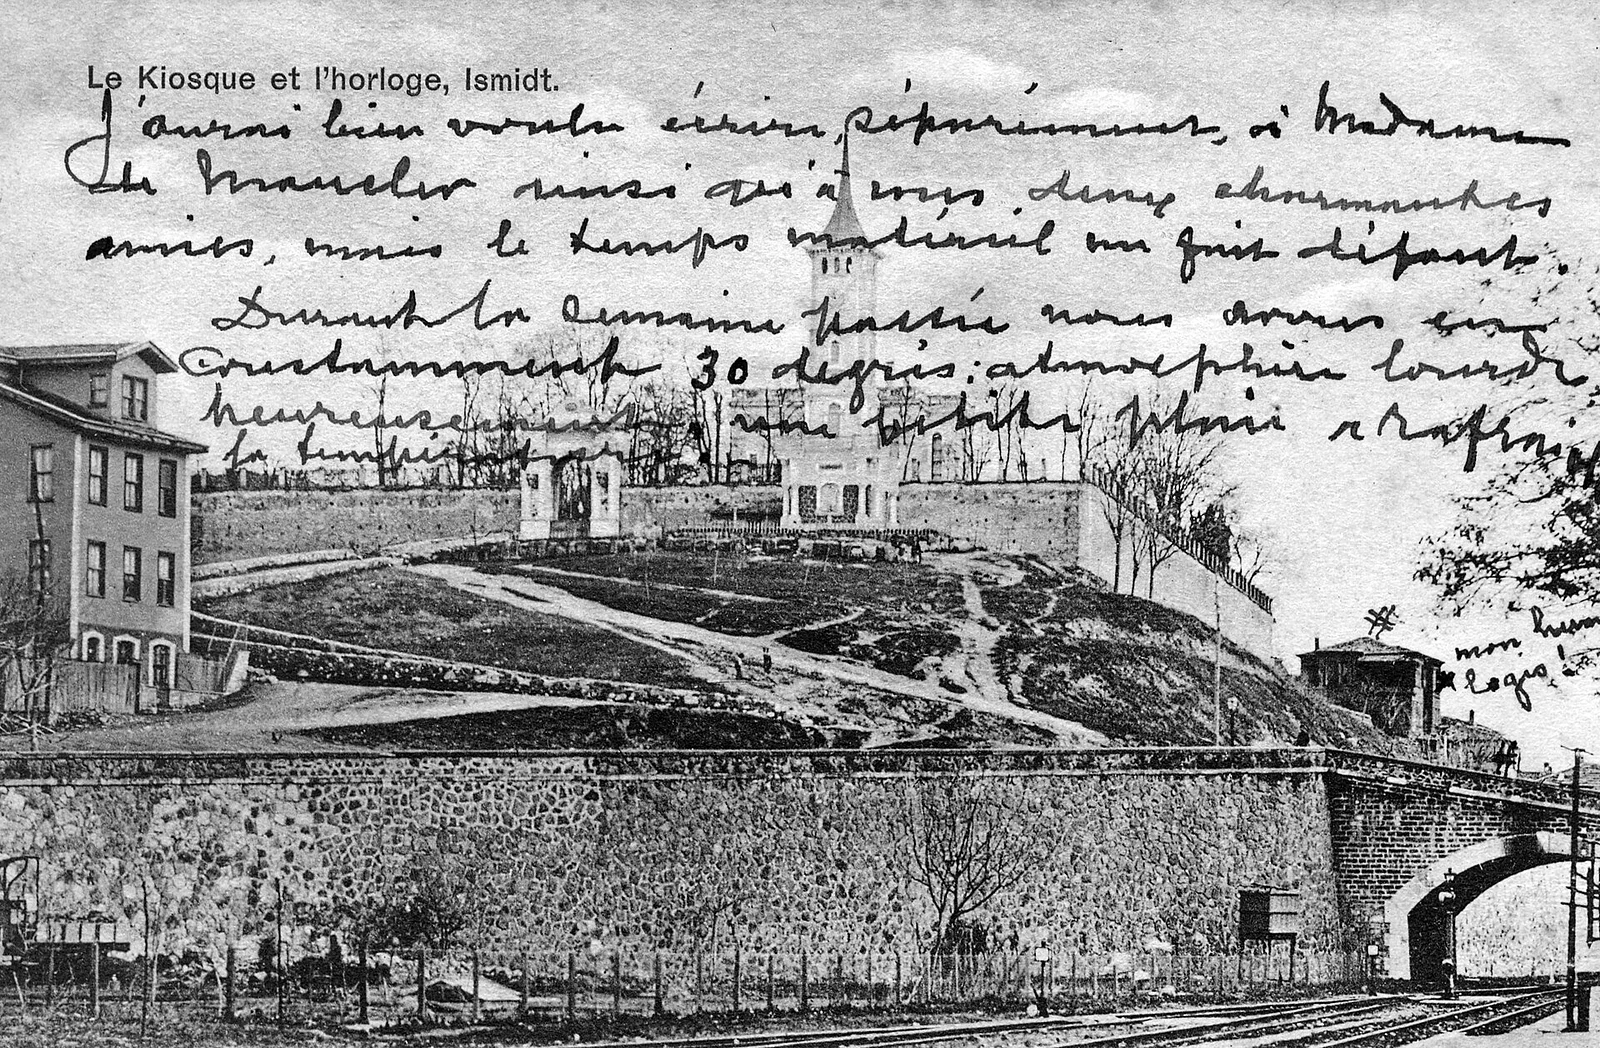 Le Kiosque et l'horloge, Ismidt.
J'aurai bien voulu écrire, séparément, à Madame
de ainsi qu'à vous deux charmantes
amies, mais le temps matériel me fait défaut.
Durant la semaine passée nous avons eu
Constamment 30 degrés: atmosphère lourde,
heureusement, une petite pluie a rafraî
la température.
mon hum
logis!